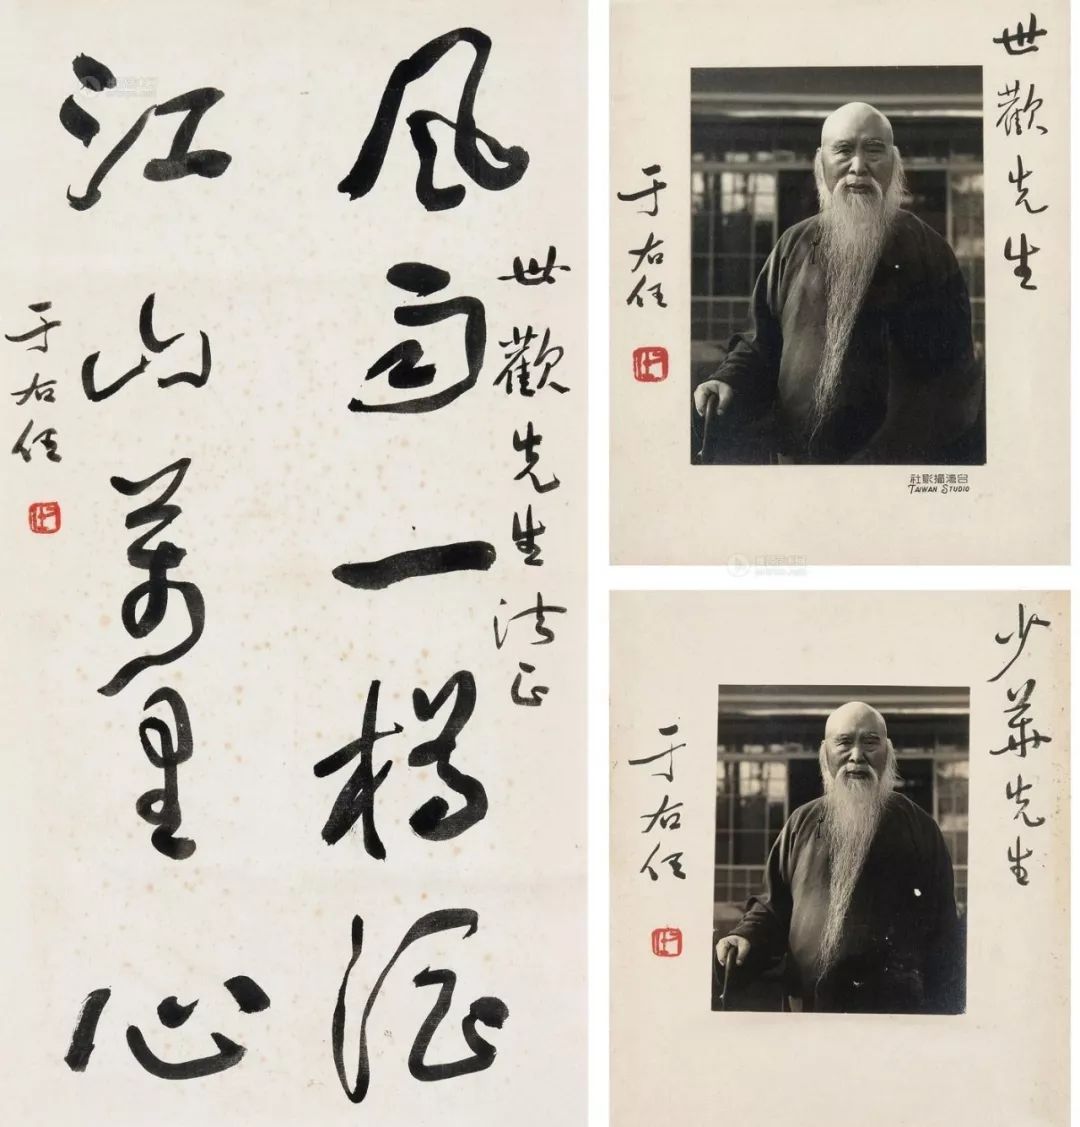 世歡先生法正
風雨一樽酒
江山萬里心
于右任
世歡先生
于右任
台灣攝影社
TAIWAN STUDIO
少華先生
于右任